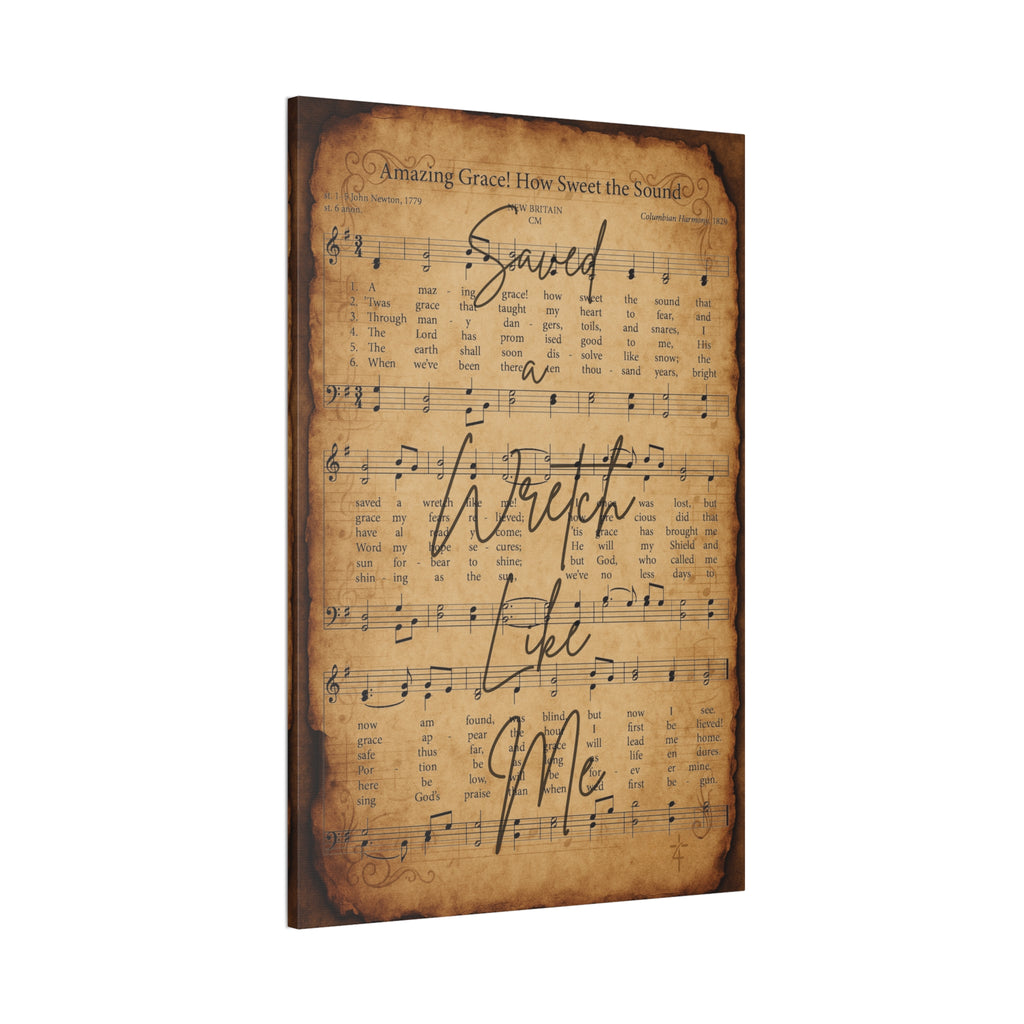 Amazing Grace! How Sweet the Sound
st. 1-5 John Newton, 1779
st. 6 anon.
NEW BRITAIN
CM
Columbian Harmony, 1829
Saved
1. A maz - ing grace! how sweet the sound that
2. 'Twas grace that taught my heart to fear, and
3. Through man - y dan - gers, toils, and snares, I
4. The Lord has prom ised good to me, His
5. The earth shall soon dis - solve like snow; the
6. When we've been there ten thou - sand years, bright
a
Wretch
saved a wretch like me! I was lost, but
grace my fears re - lieved; how pre cious did that
have al read y come; 'tis grace has brought me
Word my hope se - cures; He will my Shield and
sun for - bear to shine; but God, who called me
shin - ing as the sun, we've no less days to
Like
now am found, was blind, but now I see.
grace ap - pear the hour I first be lieved!
safe thus far, and grace will lead me home.
Por tion be as long as life en dures.
here be low, will be for - ev er mine.
sing God's praise than when we'd first be - gun.
Me